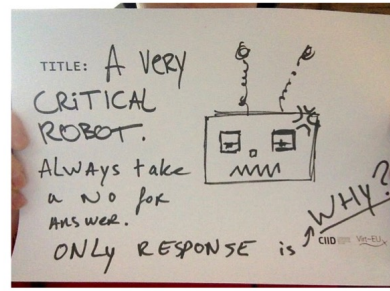 TITLE: A VERY
CRITICAL
ROBOT.
ALWAYS take
a NO for
ANSWER.
ONLY RESPONSE is WHY?
CIID